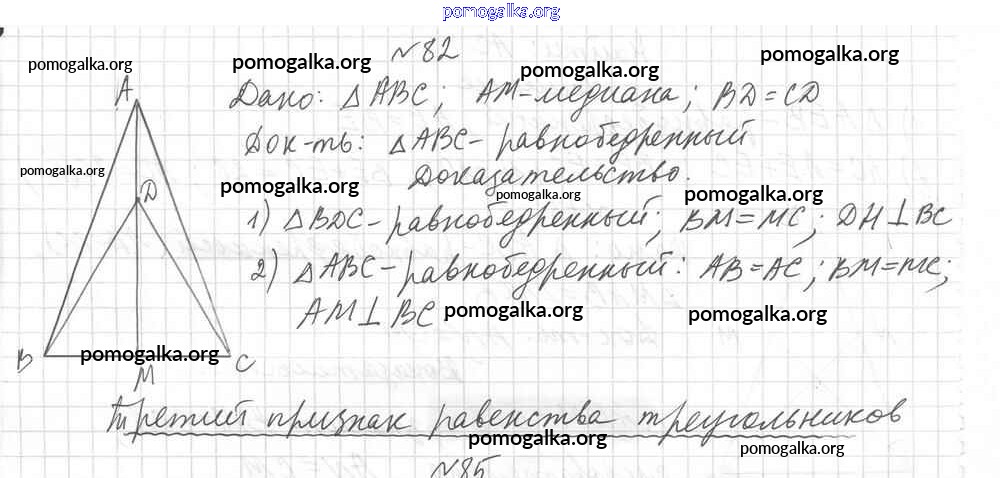 pomogalka.org
№82
pomogalka.org pomogalka.org pomogalka.org pomogalka.org
Дано: △ ABC; AM-медиана; BD=CD
Док-ть: △ABC-равнобедренный
Доказательство.
pomogalka.org pomogalka.org pomogalka.org pomogalka.org
1) △BDC-равнобедренный; BM=MC; DH⊥BC
2) △ABC-равнобедренный: AB=AC; BM=MC;
AM⊥BC
pomogalka.org pomogalka.org
A
D
B
pomogalka.org
C
M
Третий признак равенства треугольников
pomogalka.org pomogalka.org
№85